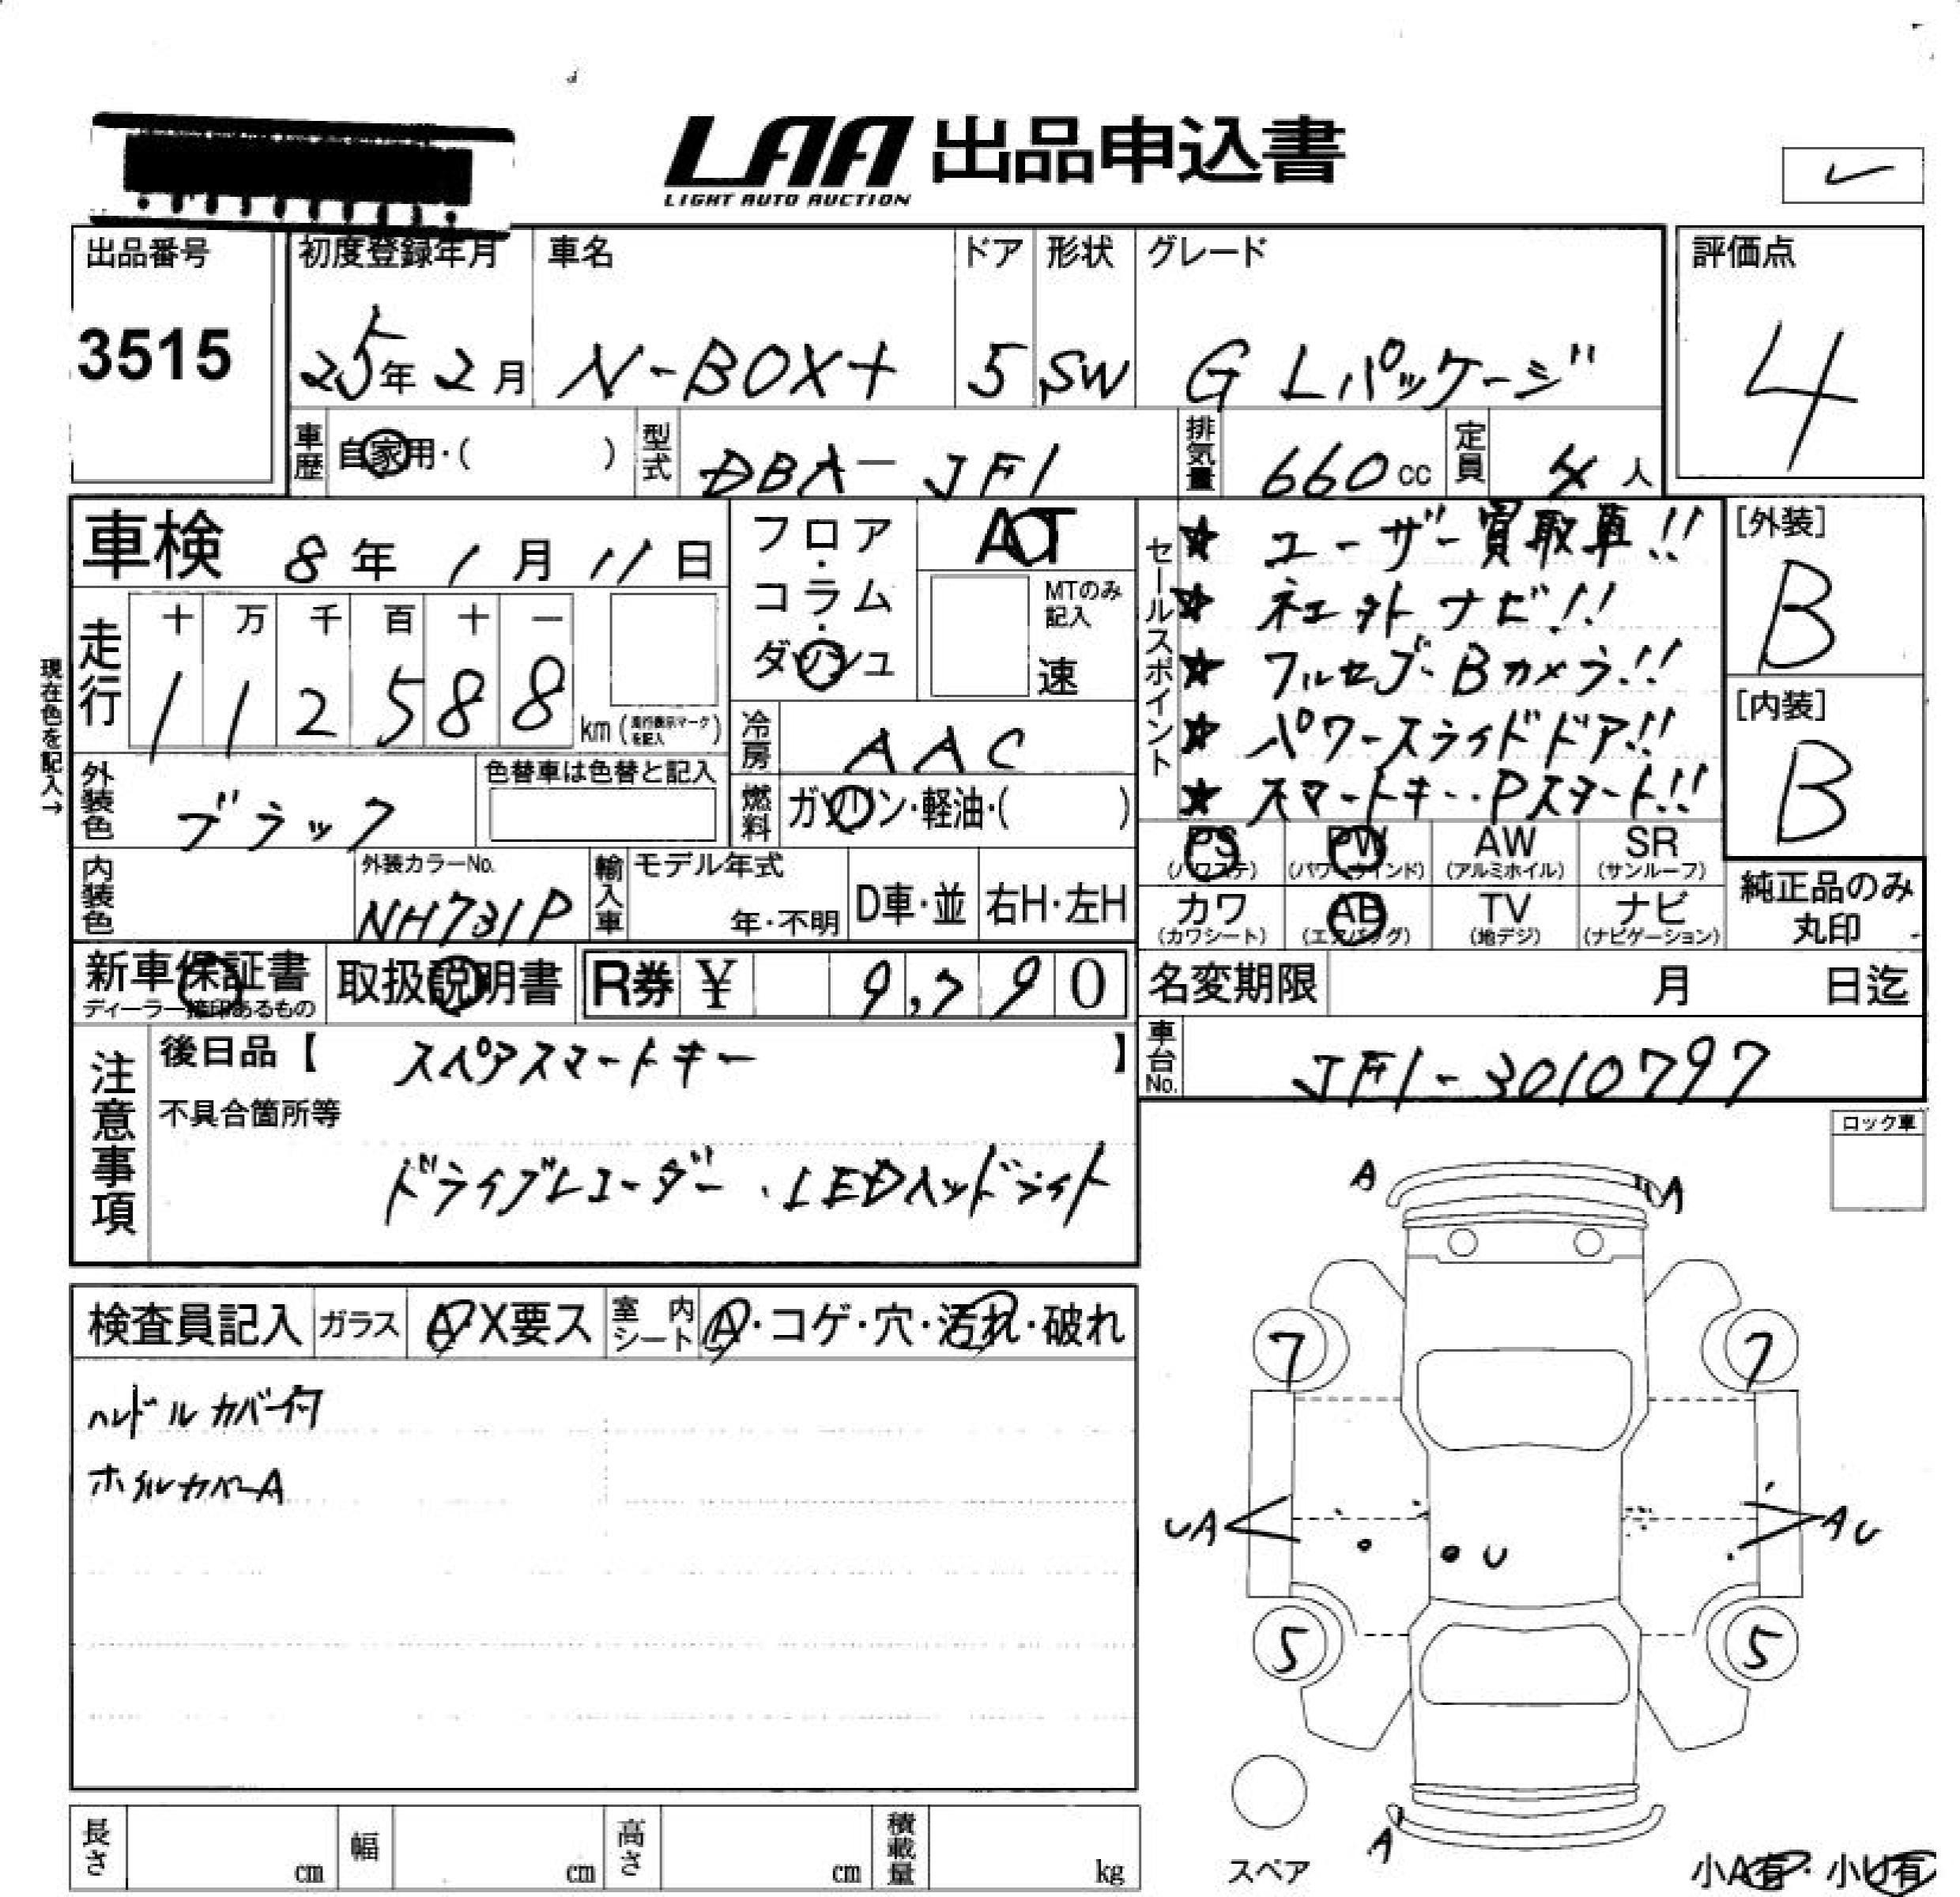 LAA 出品申込書
LIGHT AUTO AUCTION
出品番号
3515
初度登録年月
25年 2月
車名
N-BOX+
ドア
5
形状
SW
グレード
G Lパッケージ
評価点
4
車歴 自家用・( )
型式 DBA-JF1
排気量 660cc
定員 4人
車検 8年 1月 11日
フロア・コラム・ダッシュ
AT
MTのみ記入
速
現在色を記入→
走行 十 万 千 百 十 一
112588 km (走行表示マークを記入)
冷房 AAC
外装色 ブラック
色替車は色替と記入
燃料 ガソリン・軽油・( )
内装色
外装カラーNo.
NH731P
輸入車 モデル年式
年・不明
D車・並
右H・左H
新車保証書
ディーラー捺印あるもの
取扱説明書
R券 ¥ 9,790
セールスポイント
★ ユーザー買取車!!
★ ネエットナビ!!
★ フルセグ・Bカメラ!!
★ パワースライドドア!!
★ スマートキー・Pスタート!!
[外装]
B
[内装]
B
PS (パワステ)
PW (パワーウインド)
AW (アルミホイル)
SR (サンルーフ)
カワ (カワシート)
AB (エアバッグ)
TV (地デジ)
ナビ (ナビゲーション)
純正品のみ丸印
名変期限 月 日迄
車台No. JF1-3010797
注意事項
後日品【 スペアスマートキー 】
不具合箇所等
ドライブレコーダー・LEDヘッドライト
ロック車
検査員記入
ガラス A・X要ス
室内シート A・コゲ・穴・汚れ・破れ
ハンドルカバー付
ホイルカバーA
A
A
7
7
UA
U
AU
5
5
A
スペア
小A有・小U有
長さ cm
幅 cm
高さ cm
積載量 kg